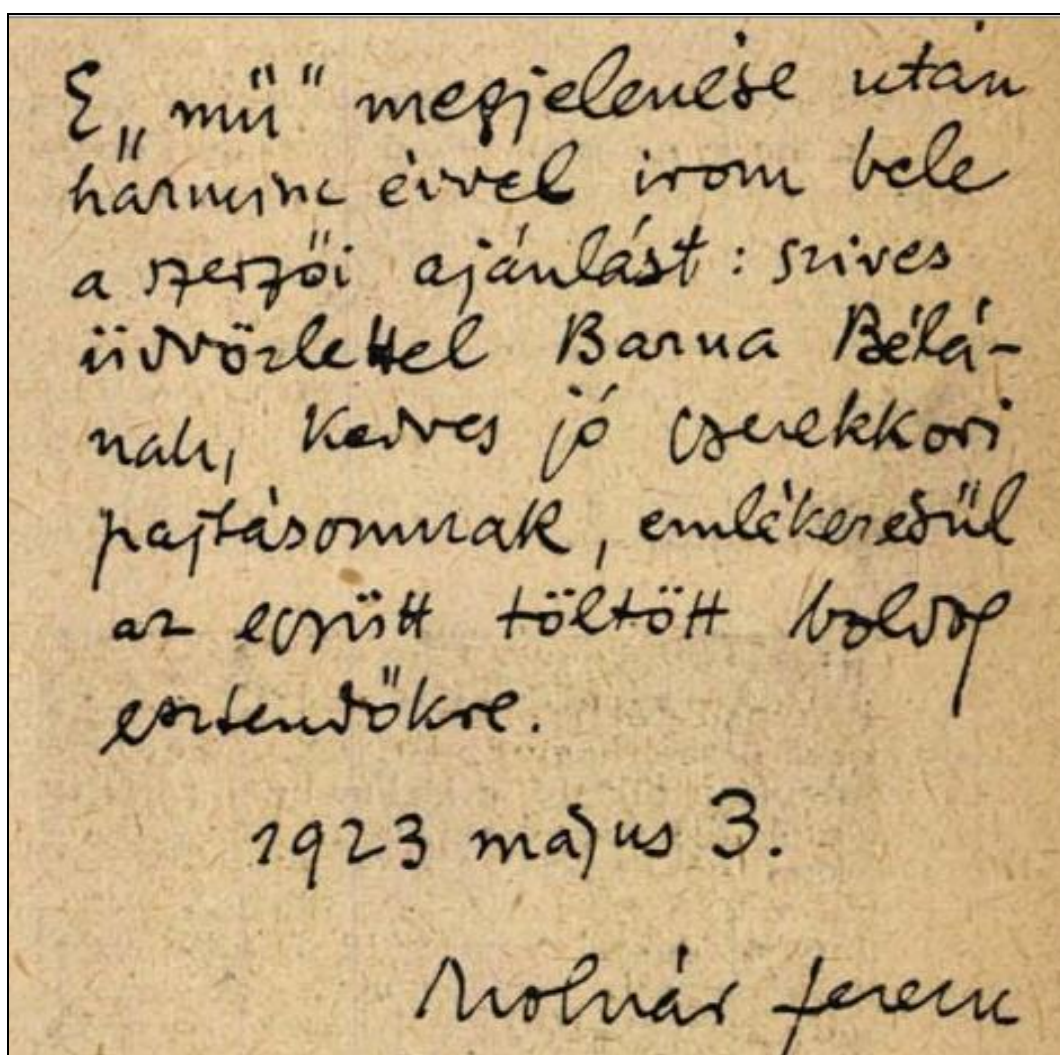 E „mű" megjelenése után
harminc évvel irom bele
a szerzői ajánlást: szives
üdvözlettel Barna Bélá-
nak, kedves jó gyerekkori
pajtásomnak, emlékezésül
az együtt töltött boldog
esztendőkre.
1923 május 3.
Molnár Ferenc